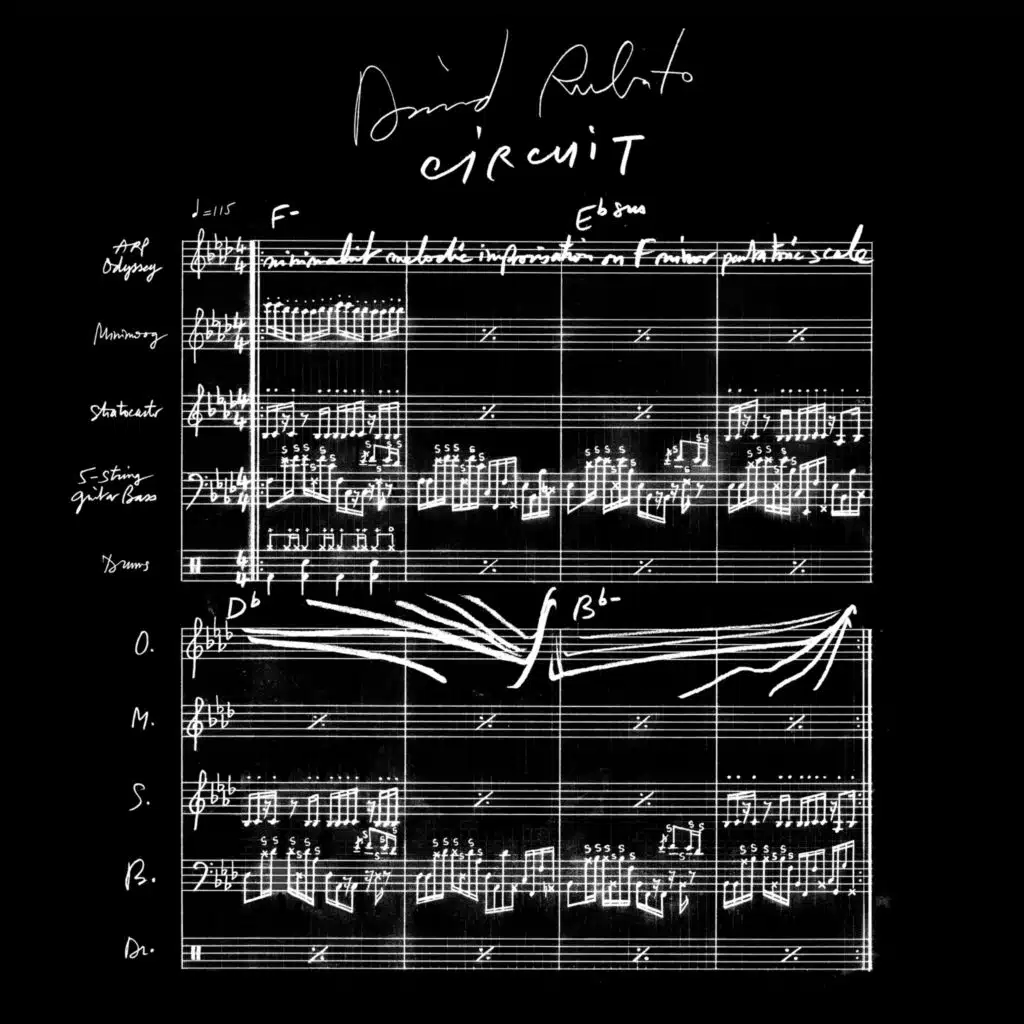 David Rubato
CIRCUIT
♩=115
F-
E♭sus
ARP
Odyssey
minimalist melodic improvisation on F minor pentatonic scale
Minimoog
Stratocaster
5-String
guitar Bass
Drums
D♭
B♭-
O.
M.
S.
B.
Dr.